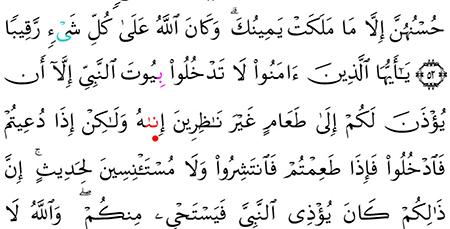 حُسْنُهُنَّ إِلَّا مَا مَلَكَتْ يَمِينُكَ ۗ وَكَانَ ٱللَّهُ عَلَىٰ كُلِّ شَىْءٍ رَّقِيبًا
۝٥٢ يَـٰٓأَيُّهَا ٱلَّذِينَ ءَامَنُوا۟ لَا تَدْخُلُوا۟ بِيُوتَ ٱلنَّبِىِّ إِلَّآ أَن
يُؤْذَنَ لَكُمْ إِلَىٰ طَعَامٍ غَيْرَ نَـٰظِرِينَ إِنَىٰهُ وَلَـٰكِنْ إِذَا دُعِيتُمْ
فَٱدْخُلُوا۟ فَإِذَا طَعِمْتُمْ فَٱنتَشِرُوا۟ وَلَا مُسْتَـْٔنِسِينَ لِحَدِيثٍ ۚ إِنَّ
ذَٰلِكُمْ كَانَ يُؤْذِى ٱلنَّبِىَّ فَيَسْتَحْىِۦ مِنكُمْ ۖ وَٱللَّهُ لَا